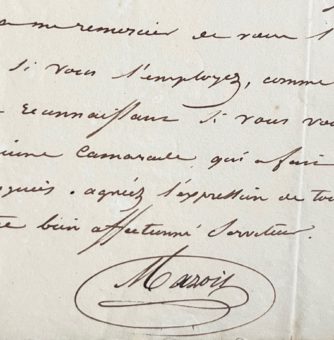 me remercier de vous l
si vous l'employez, comme
reconnaissant si vous vou
camarade, qui a fait
agréez l'expression de tou
re bien affectionné serviteur.
Marois